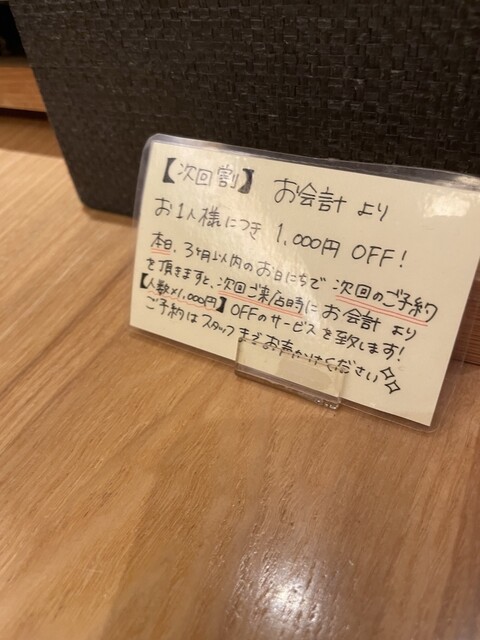 【次回割】 お会計 より
お1人様につき 1,000円 OFF!
本日、3ヶ月以内のお日にちで 次回のご予約
を頂きますと、次回ご来店時に お会計 より
【人数×1,000円】 OFFのサービスを致します!
ご予約はスタッフまでお声かけください